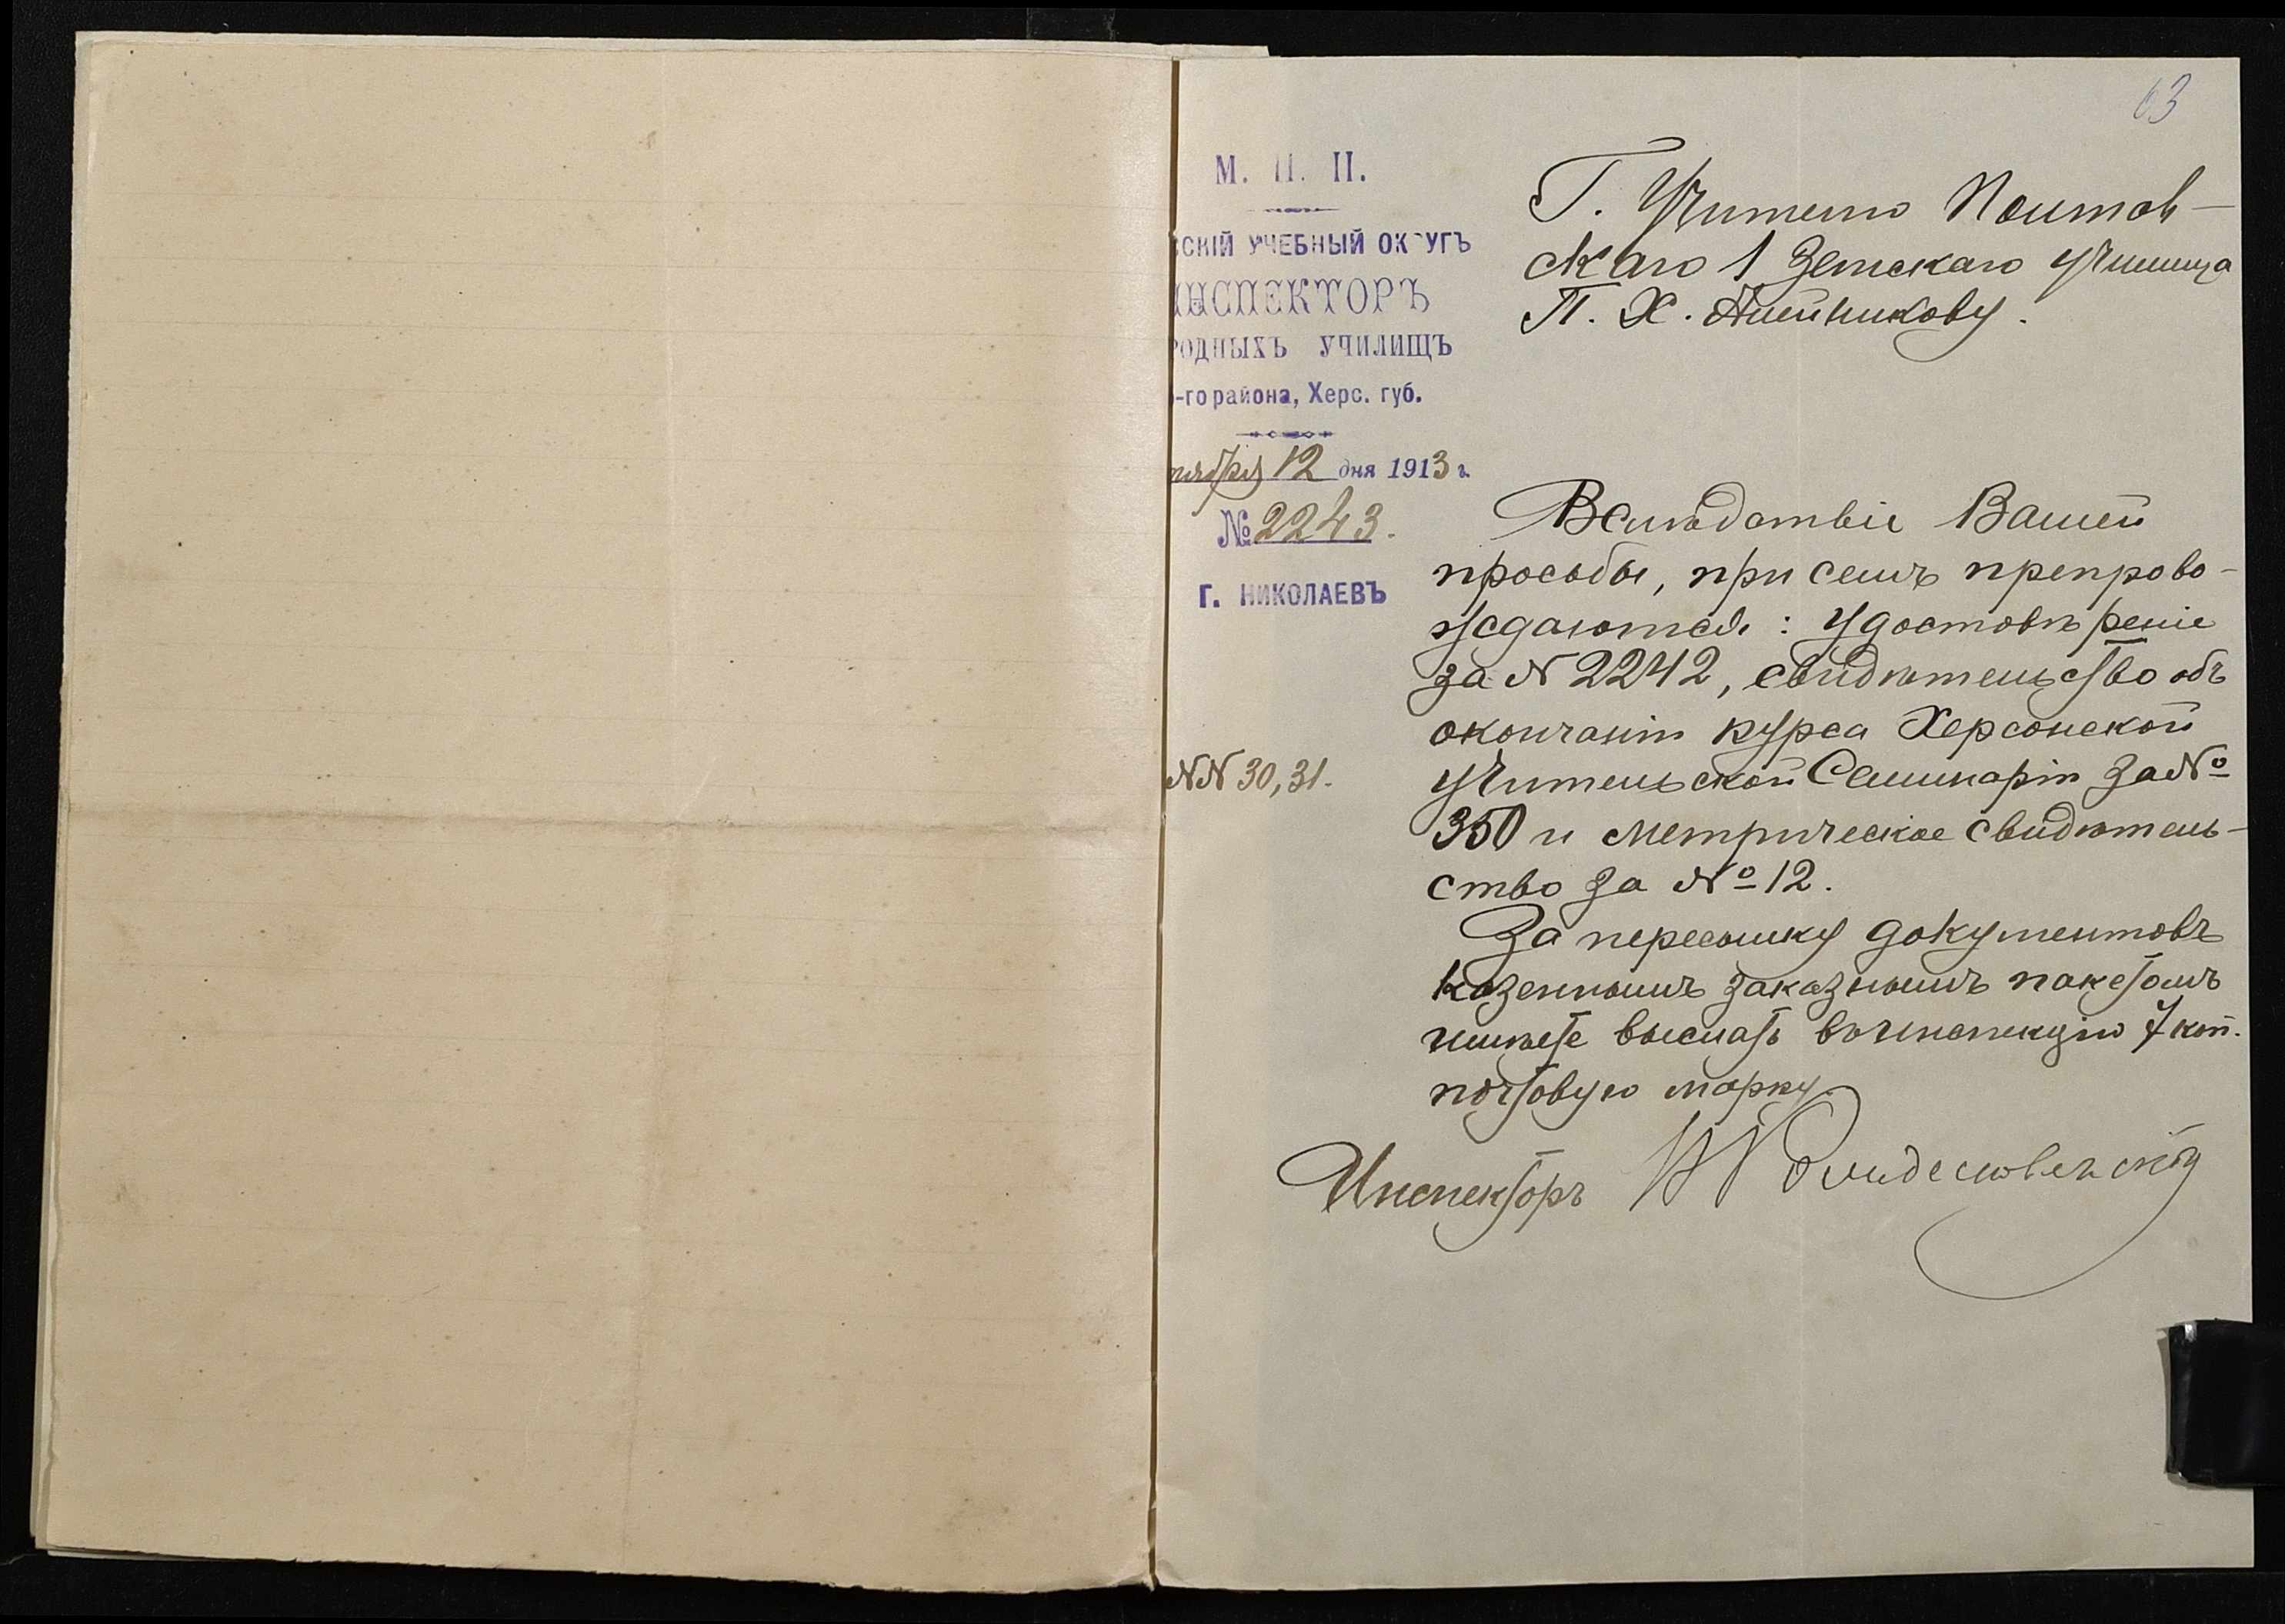 63
М. Н. П.
СКІЙ УЧЕБНЫЙ ОКРУГЪ
ИНСПЕКТОРЪ
РОДНЫХЪ УЧИЛИЩЪ
-го района, Херс. губ.
тября 12 дня 1913 г.
№ 2243.
Г. НИКОЛАЕВЪ
NN 30, 31.
Г. Учителю Полтав-
скаго 1 Земскаго училища
П. Х. Алейникову.
Вслѣдствіе Вашей
просьбы, при семъ препрово-
ждаются: удостовѣреніе
за N 2242, свидѣтельство объ
окончаніи курса Херсонской
Учительской Семинаріи за №
350 и метрическое свидѣтель-
ство за № 12.
За пересылку документовъ
казеннымъ заказнымъ пакетомъ
имѣете выслать въ инспекцію 7 коп.
почтовую марку.
Инспекторъ